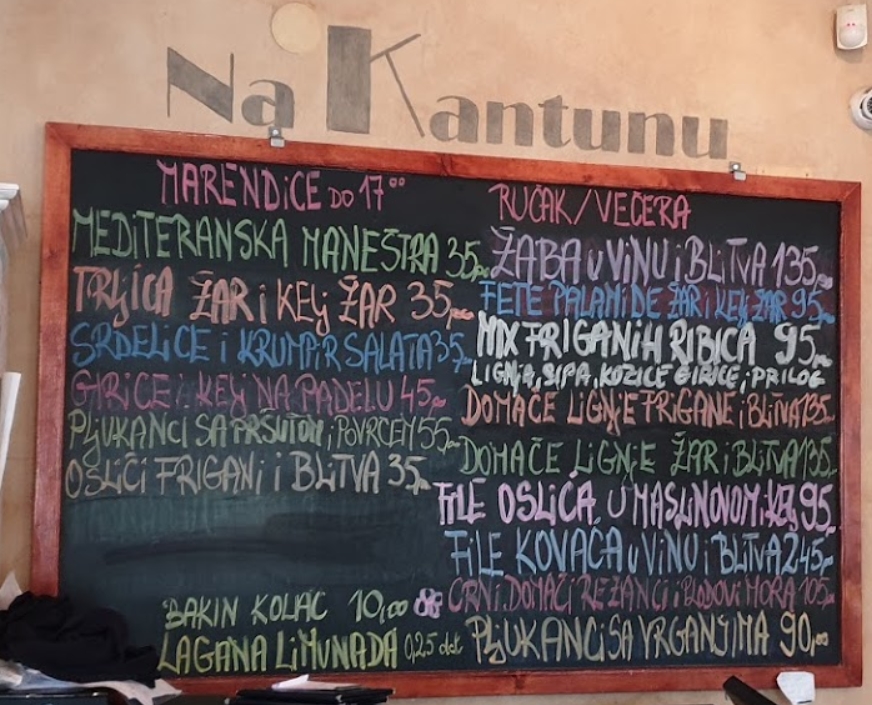 Na Kantunu
MARENDICE DO 17°°
MEDITERANSKA MANEŠTRA 35,00
TRLJICA ŽAR i KELJ ŽAR 35,00
SRDELICE i KRUMPIR SALATA 35,00
GIRICE i KELJ NA PADELU 45,00
PLJUKANCI SA PRŠUTOM i POVRĆEM 55,00
OSLIĆI FRIGANI i BLITVA 35,00
ĐAKIN KOLAČ 10,00
LAGANA LIMUNADA 0,25 dct
RUČAK/VEČERA
ŽABA U VINU i BLITVA 135,00
FETE PALAMIDE ŽAR i KELJ ŽAR 95,00
MIX FRIGANIH RIBICA 95,00
LIGNJA, SIPA, KOZICE GIRICE, i PRILOG
DOMAĆE LIGNJE FRIGANE i BLITVA 135,00
DOMAĆE LIGNJE ŽAR i BLITVA 135,00
FILE OSLIĆA U MASLINOVOM, i KELJ 95,00
FILE KOVAČA U VINU i BLITVA 245,00
CRNI DOMAĆI REZANCI i PLODOVI MORA 105,00
PLJUKANCI SA VRGANJIMA 90,00